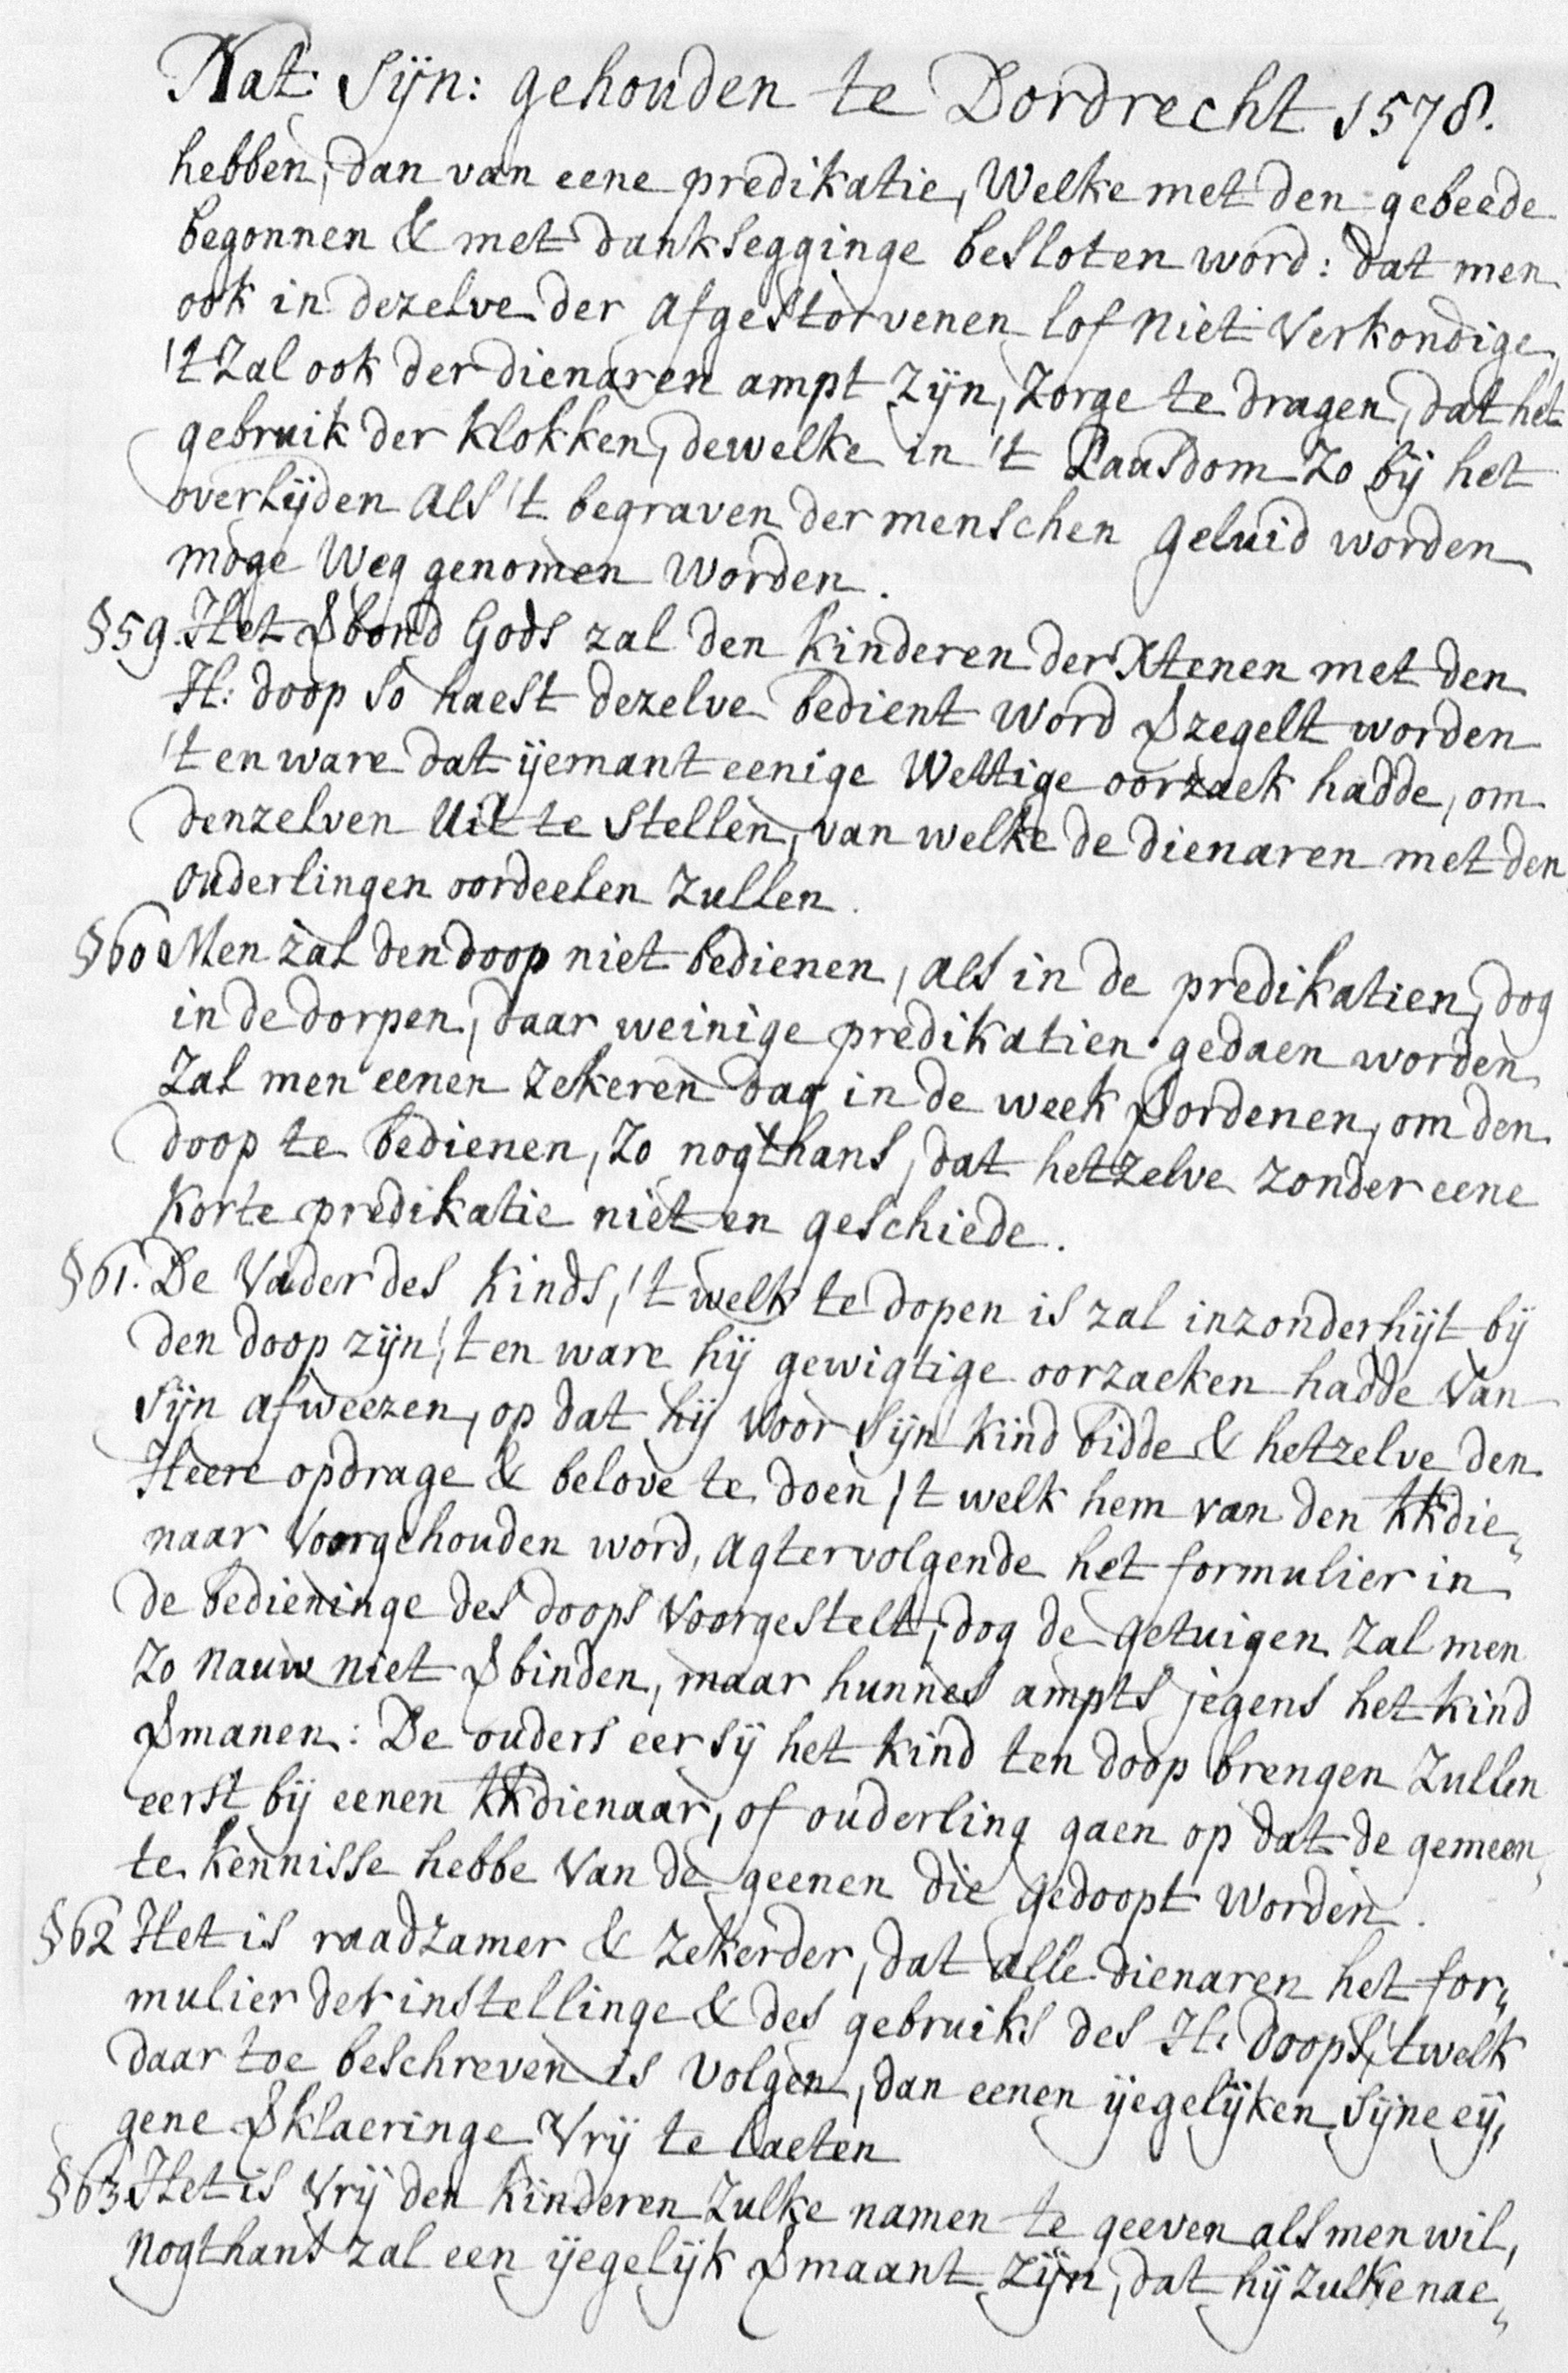 Nat: Sijn: gehouden te Dordrecht 1578.
hebben, dan van eene predikatie, Welke met den gebeede
begonnen & met dankzegginge besloten word: dat men
ook in dezelve der afgestorvenen lof niet Verkondige,
't Zal ook der dienaren ampt Zijn, Zorge te dragen, dat het
gebruik der klokken, dewelke in 't Pausdom Zo bij het
overlijden als 't begraven der menschen geluid worden
moge Weg genomen Worden.
§59. Het Vbond Gods zal den kinderen der Xtenen met den
H: doop so haest dezelve bedient word Vzegelt worden
't en ware dat ijemant eenige Wettige oorzaek hadde, om
denzelven Uit te stellen, van welke de dienaren met den
ouderlingen oordeelen Zullen.
§60 Men zal den doop niet bedienen, als in de predikatien, dog
in de dorpen, daar weinige predikatien gedaen worden
Zal men eenen zekeren dag in de week Vordenen, om den
doop te bedienen, Zo nogthans, dat hetzelve zonder eene
korte predikatie niet en geschiede.
§61. De Vader des kinds, 't welk te dopen is zal inzonderhijt bij
den doop zijn, 't en ware hij gewigtige oorzaeken hadde Van
sijn afweezen, op dat hij voor sijn kind bidde & hetzelve den
Heere opdrage & belove te doen, 't welk hem van den kkdie„
naar Voorgehouden word, agtervolgende het formulier in
de bedieninge des doops voorgestelt, dog de getuigen zal men
Zo nauw niet Vbinden, maar hunnes ampts jegens het kind
Vmanen: De ouders eer sij het kind ten doop brengen Zullen
eerst bij eenen kkdienaar, of ouderling gaen op dat de gemeen„
te kennisse hebbe Van de geenen die gedoopt Worden.
§62 Het is raadzamer & zekerder, dat alle dienaren het for„
mulier der instellinge & des gebruiks des H: doops, 't welk
daar toe beschreven is volgen, dan eenen ijegelijken sijne eij„
gene Vklaeringe Vrij te laeten
§63 Het is Vrij den kinderen Zulke namen te geeven als men wil,
nogthans zal een ijegelijk Vmaant Zijn, dat hij zulke nae„